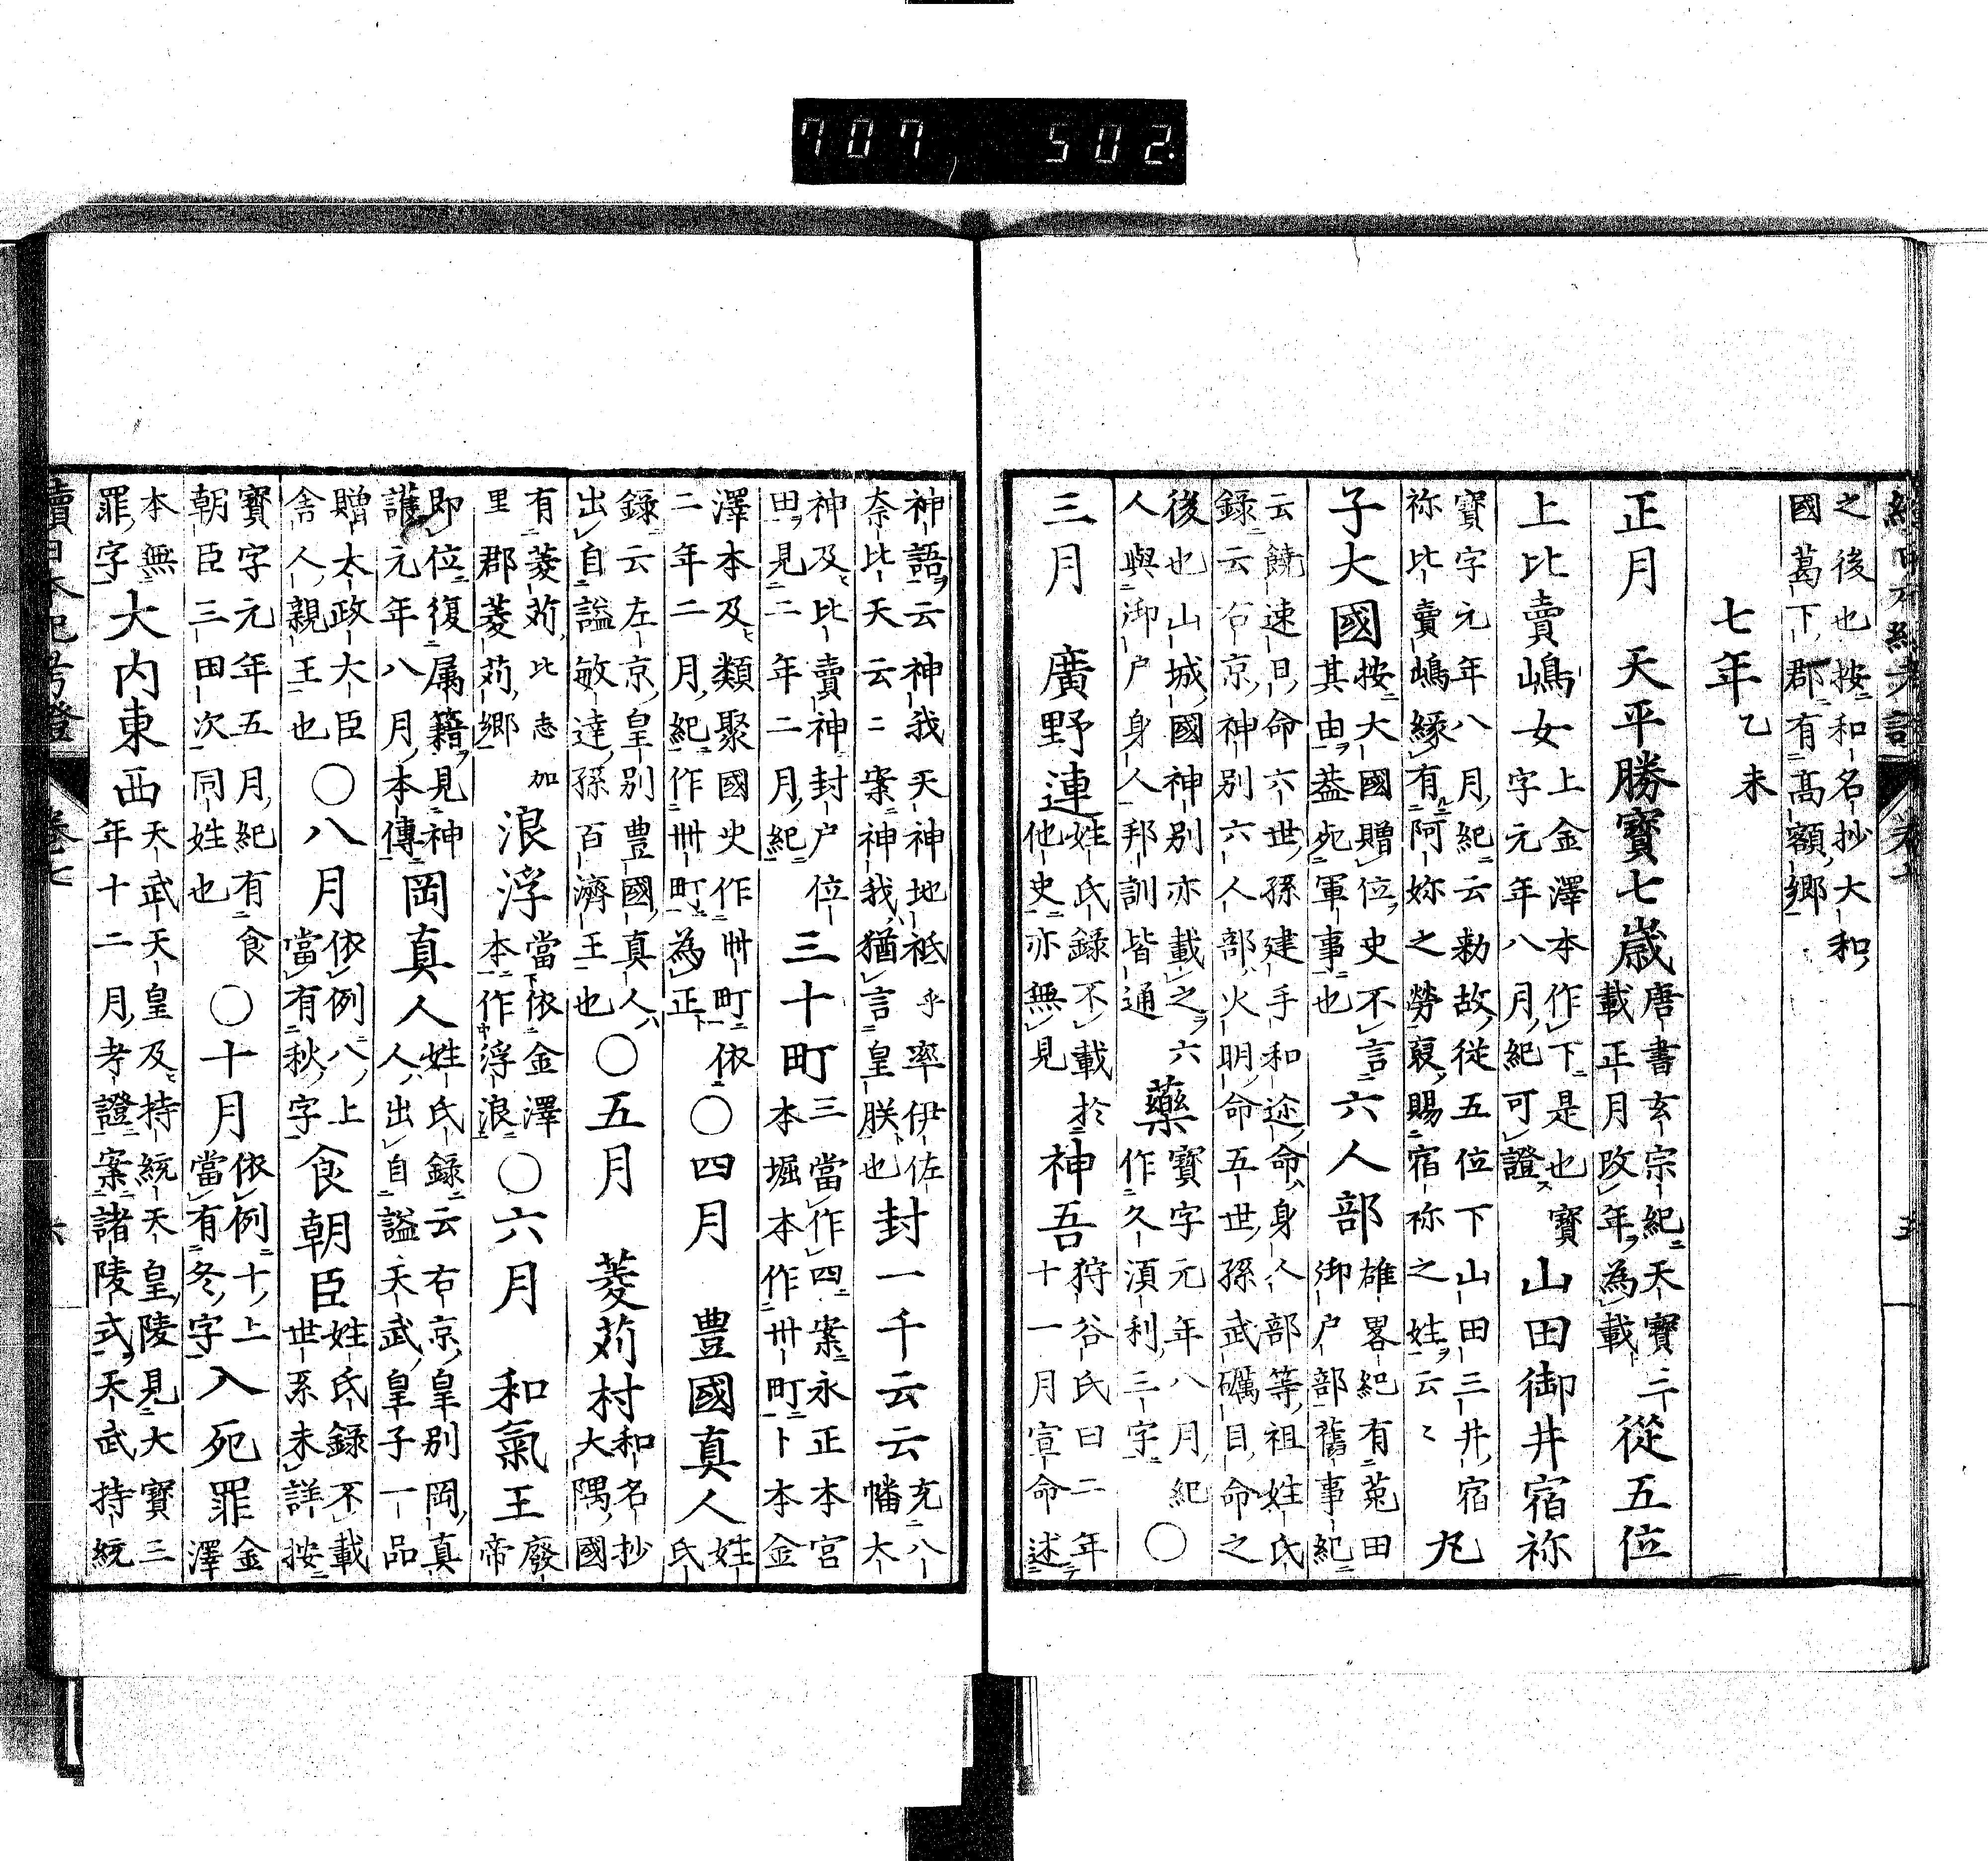 707 502.
續日本紀考證 卷七 五
之後也按和名抄大和
國葛下郡有高額鄉
七年乙未
正月 天平勝寶七歲唐書玄宗紀天寶三載正月改年為載從五位
上比賣嶋女上金澤本作下是也寶字元年八月紀可證山田御井宿祢
寶字元年八月紀云勅故從五位下山田三井宿祢比賣嶋緣有阿妳之勞裒賜宿祢之姓云〻丸
子大國按大國贈位史不言其由蓋死軍事也六人部雄畧紀有菟田御戶部舊事紀
云饒速日命六世孫建手和迩命身人部等祖姓氏錄云右京神別六人部火明命五世孫武礪目命之
後也山城國神別亦載之六人與御戶身人邦訓皆通藥寶字元年八月紀作久湏利三字○
三月 廣野連姓氏錄不載於他史亦無見神吾狩谷氏曰二年十一月宣命述
神語云神我天神地祇乎率伊佐奈比天云〻案神我猶言皇朕也封一千云云充八幡大
神及比賣神封戶位田見二年二月紀三十町三當作四案永正本宮本堀本作卌町卜本金
澤本及類聚國史作卌町依二年二月紀作卌町為正○四月 豊國真人姓氏
錄云左京皇別豊國真人出自謚敏達孫百濟王也○五月 菱苅村和名抄大隅國
有菱苅比志加里郡菱苅鄉浪浮當依金澤本作浮浪○六月 和氣王廢帝
即位復属籍見神護元年八月本傳岡真人姓氏錄云右京皇別岡真人出自謚天武皇子一品
贈太政大臣舍人親王也○八月依例八上當有秋字食朝臣姓氏錄不載世系未詳按
寶字元年五月紀有食朝臣三田次同姓也○十月依例十上當有冬字入死罪金澤
本無罪字大内東西天武天皇及持統天皇陵見大寶三年十二月考證案諸陵式天武持統
續日本紀考證 卷七 六